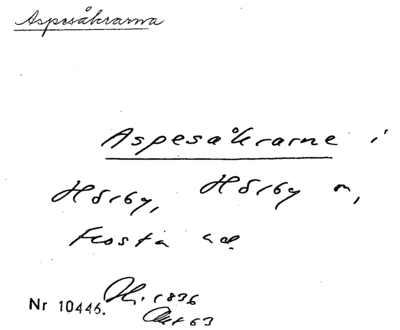 Aspesåkrarna
Aspesåkrarne i
Hörby, Hörby m,
Frosta hd.
Nr 10446. 1836
Akt 63